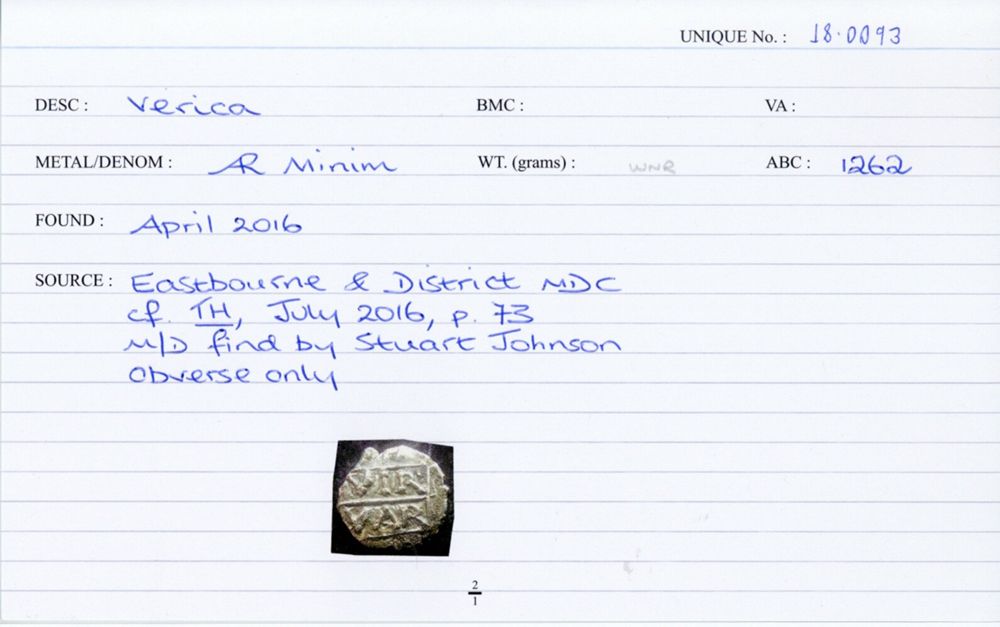 UNIQUE No. : 18.0093
DESC : Verica BMC : VA :
METAL/DENOM : AR Minim WT. (grams) : WNR ABC : 1262
FOUND : April 2016
SOURCE : Eastbourne & District MDC
cf. TH, July 2016, p. 73
M/D find by Stuart Johnson
Obverse only
VIR
VAR
2
1